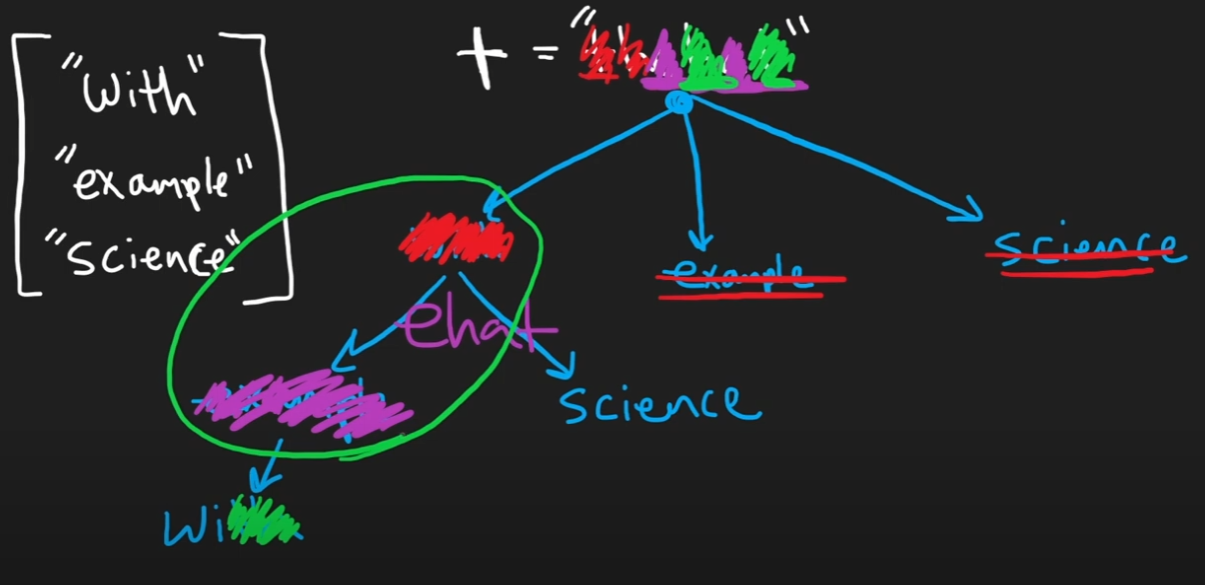 "with"
"example"
"science"
t = " "
example
science
ehat
science
wi